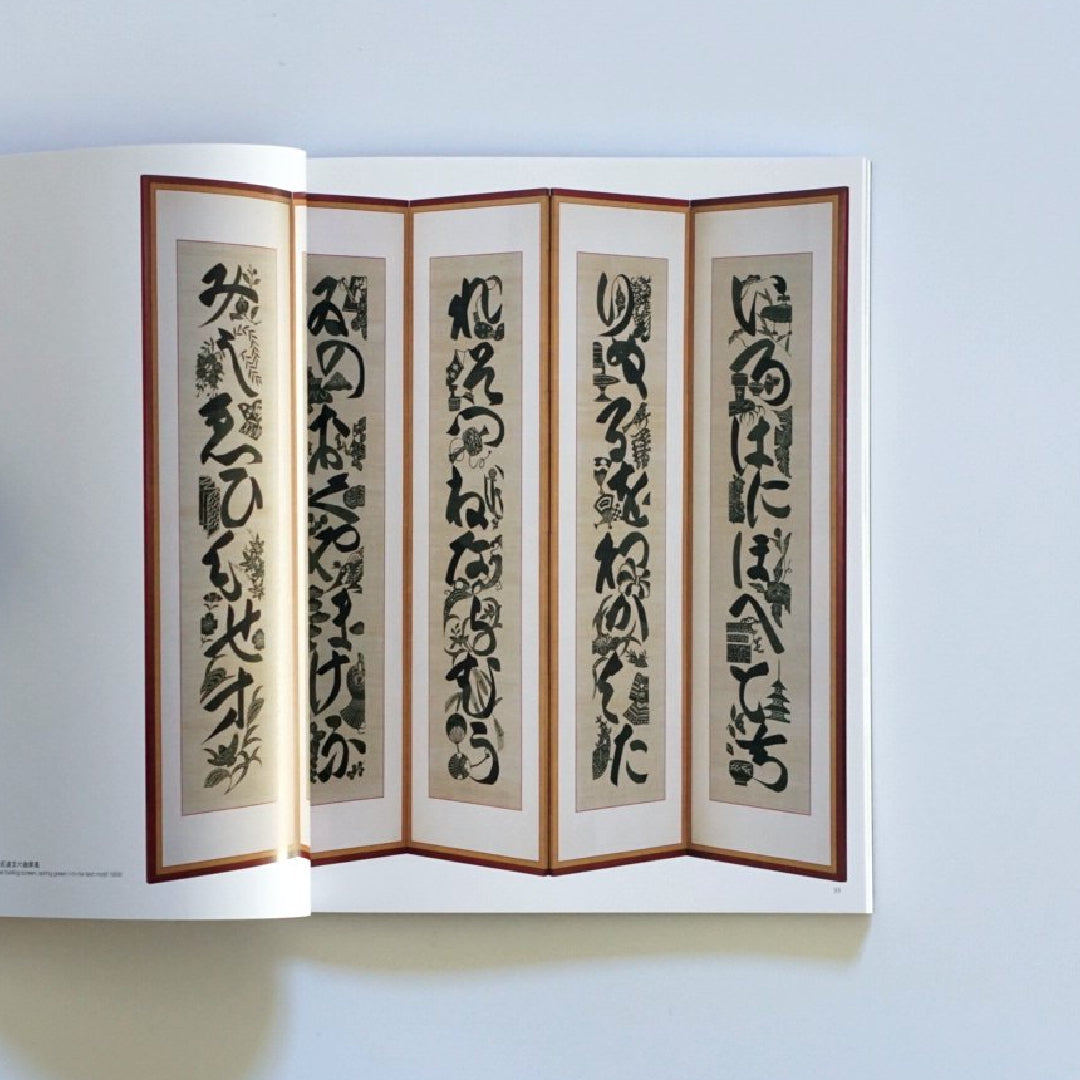 いろはにほへとち
りぬるをわかよた
れそつねならむう
ゐのおくやまけふ
みしゑひもせす
folding screen,